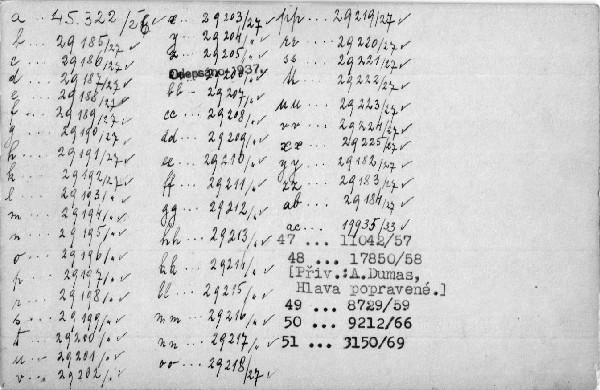 a ... 45.322/26 ✓
b ... 29185/27 ✓
c ... 29186/27 ✓
d ... 29187/27 ✓
e ... 29188/27 ✓
f ... 29189/27 ✓
g ... 29190/27
h ... 29191/27 ✓
k ... 29192/27 ✓
l ... 29193/" ✓
m ... 29194/" ✓
n ... 29195/" ✓
o ... 29196/" ✓
p ... 29197/" ✓
r ... 29198/" ✓
s ... 29199/" ✓
t ... 29200/" ✓
u ... 29201/" ✓
v ... 29202/" ✓
x ... 29203/27 ✓
y ... 29204/" ✓
z ... 29205/" ✓
Odepsáno 1937
bb ... 29207/"
cc ... 29208/" ✓
dd ... 29209/" ✓
ee ... 29210/" ✓
ff ... 29211/" ✓
gg ... 29212/" ✓
hh ... 29213/" ✓
kk ... 29214/" ✓
ll ... 29215/" ✓
mm ... 29216/" ✓
nn ... 29217/" ✓
oo ... 29218/27 ✓
pp ... 29219/27 ✓
rr ... 29220/27 ✓
ss ... 29221/27 ✓
tt ... 29222/27 ✓
uu ... 29223/27 ✓
vv ... 29224/27 ✓
xx ... 29225/27 ✓
yy ... 29182/27 ✓
zz ... 29183/27 ✓
ab ... 29184/27 ✓
ac ... 19935/33 ✓
47 ... 11042/57
48 ... 17850/58
[Přív.:A.Dumas,
Hlava popravené.]
49 ... 8729/59
50 ... 9212/66
51 ... 3150/69